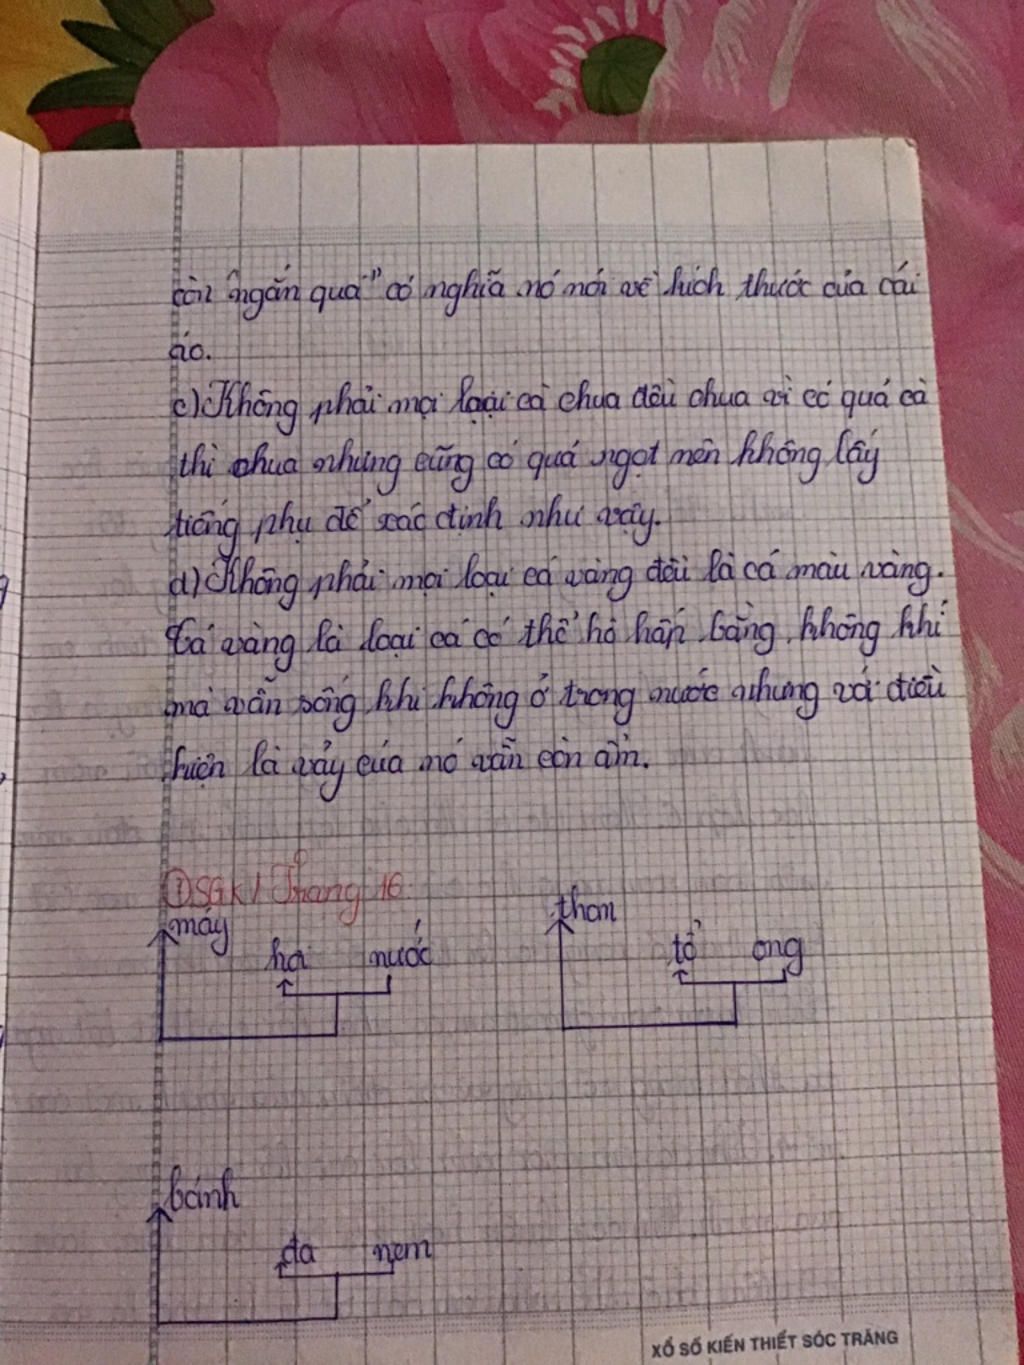 còn "ngắn quá" có nghĩa nó nói về kích thước của cái
áo.
c) Không phải mọi loại cà chua đều chua vì có quả cà
thì chua nhưng cũng có quả ngọt nên không lấy
tiếng phụ để xác định như vậy.
d) Không phải mọi loại cá vàng đều là cá màu vàng.
Cá vàng là loại cá có thể hô hấp bằng không khí
mà vẫn sống khi không ở trong nước nhưng với điều
kiện là vảy của nó vẫn còn ẩm.
7) SGK / Trang 16
máy
hơi nước
than
tổ ong
bánh
đa nem
XỔ SỐ KIẾN THIẾT SÓC TRĂNG